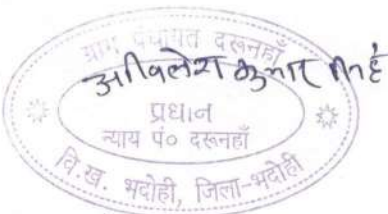 ग्राम पंचायत दरूनहाँ
अखिलेश कुमार सिंह
प्रधान
न्याय पं० दरूनहाँ
वि.ख. भदोही, जिला-भदोही